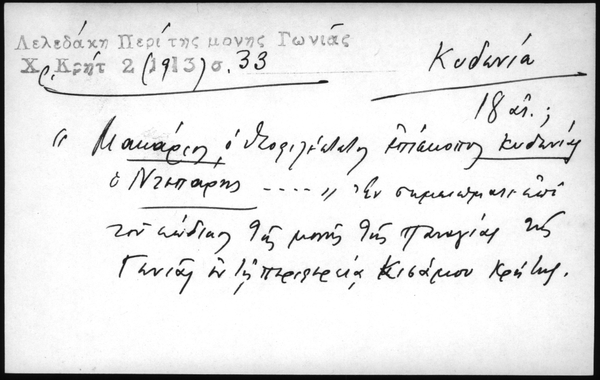 Λελεδάκη Περί της μονης Γωνιᾶς
Χρ. Κρήτ 2 (1913) σ. 33
Κυδωνία
18 αἰ. ;
" Μακάριος, ὁ θεοφιλέστατος ἐπίσκοπος Κυδωνίας
ὁ Ντεπάρης .... " Ἐν σημειώματι ἐπὶ
τοῦ κώδικος τῆς μονῆς τῆς Παναγίας τῆς
Γωνιᾶς ἐν τῇ περιφερείᾳ Κισάμου Κρήτης.